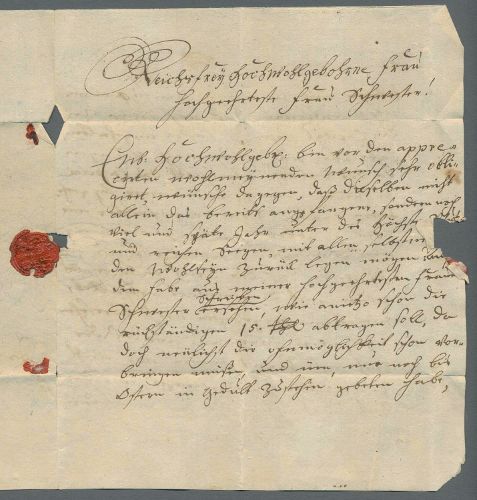 Reichsfrey Hochwohlgebohrne Frau
Hochgeehrteste Frau Schwester!
Ew: Hochwohlgeb: bin vor den appre-
cirten wohlmeynenden Wunsch sehr obli-
giret, wünsche dagegen, daß dieselben nicht
allein das bereits angefangene, sondern noch
viel und späte Jahr unter des Höchsten
und reichen Seegen, mit allen selbsten
den Wohlseyn zurück legen mögen
dem habe aus meiner hochgeehrtesten Frau
Schwester Schreiben ersehen, wie anitzo schon die
rückständigen 15. abtragen soll, da
doch neulicht die ohnmöglichkeit schon vor-
bringen müßen, und um, nur noch bis
Ostern in Gedult zustehen gebeten habe,